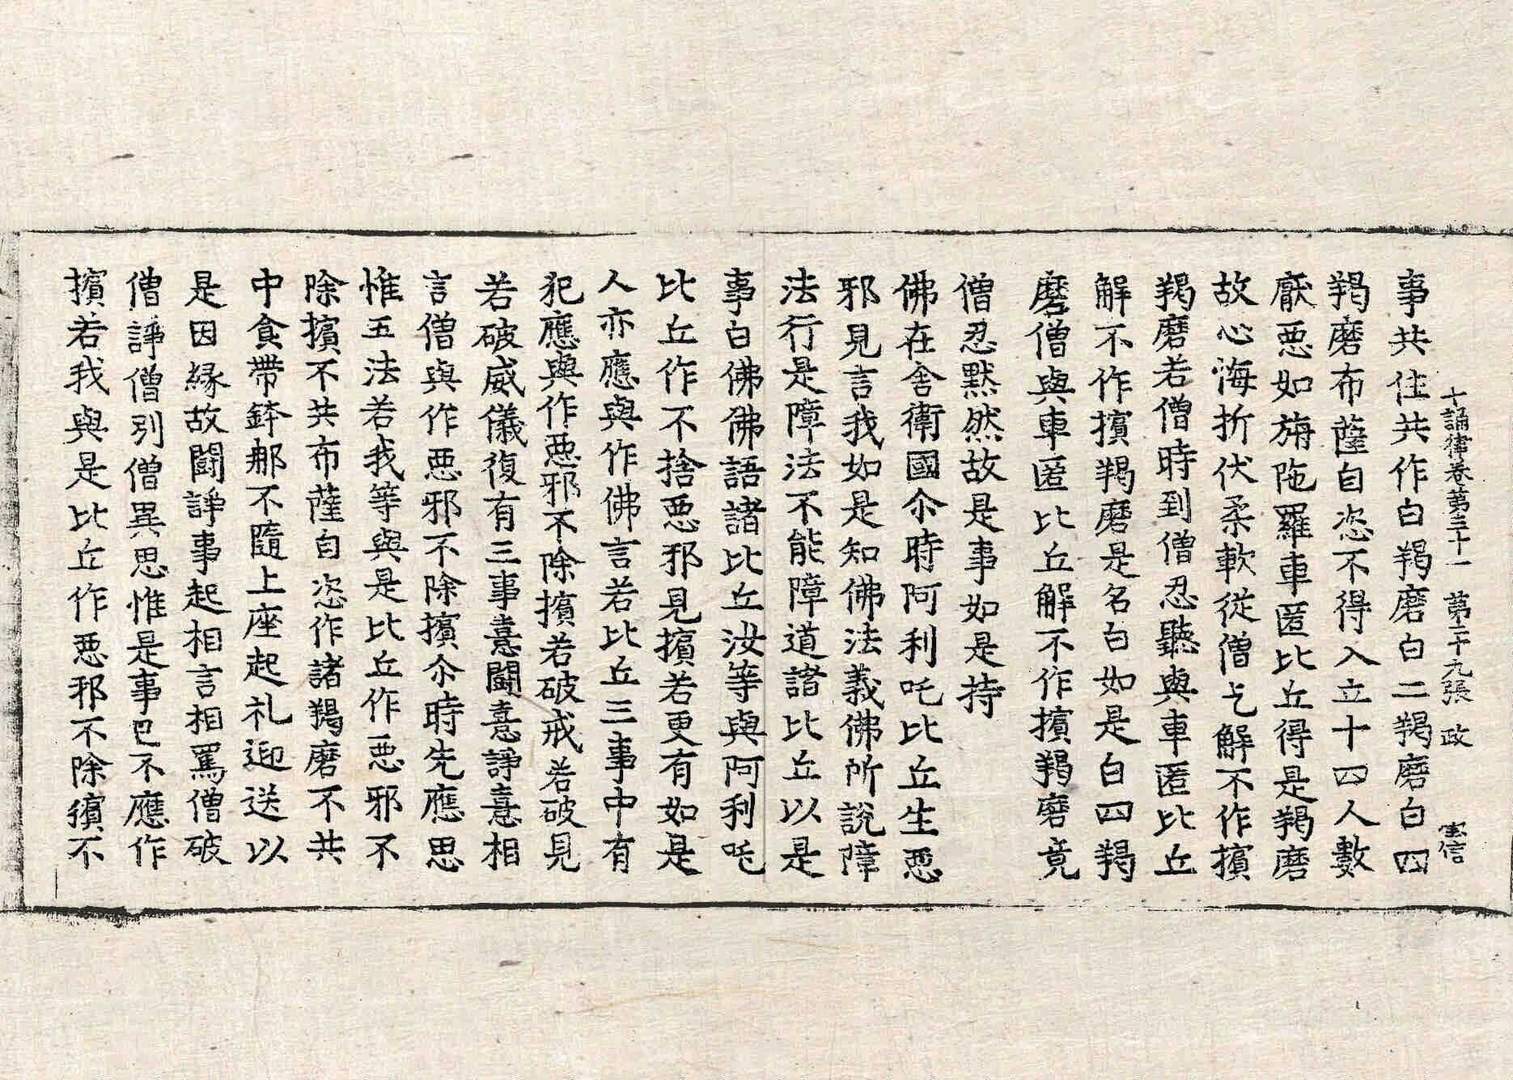 十誦律卷第三十一 第二十九張 政 宝信
事共住共作白羯磨白二羯磨白四
羯磨布薩自恣不得入立十四人數
厭惡如旃陁羅車匿比丘得是羯磨
故心悔折伏柔軟從僧乞解不作擯
羯磨若僧時到僧忍聽與車匿比丘
解不作擯羯磨是名白如是白四羯
磨僧與車匿比丘解不作擯羯磨竟
僧忍黙然故是事如是持
佛在舍衛國尒時阿利吒比丘生惡
邪見言我如是知佛法義佛所說障
法行是障法不能障道諸比丘以是
事白佛佛語諸比丘汝等與阿利吒
比丘作不捨惡邪見擯若更有如是
人亦應與作佛言若比丘三事中有
犯應與作惡邪不除擯若破戒若破見
若破威儀復有三事憙鬪憙諍憙相
言僧與作惡邪不除擯尒時先應思
惟五法若我等與是比丘作惡邪不
除擯不共布薩自恣作諸羯磨不共
中食帶鉢那不隨上座起礼迎送以
是因縁故鬪諍事起相言相罵僧破
僧諍僧別僧異思惟是事已不應作
擯若我與是比丘作惡邪不除擯不